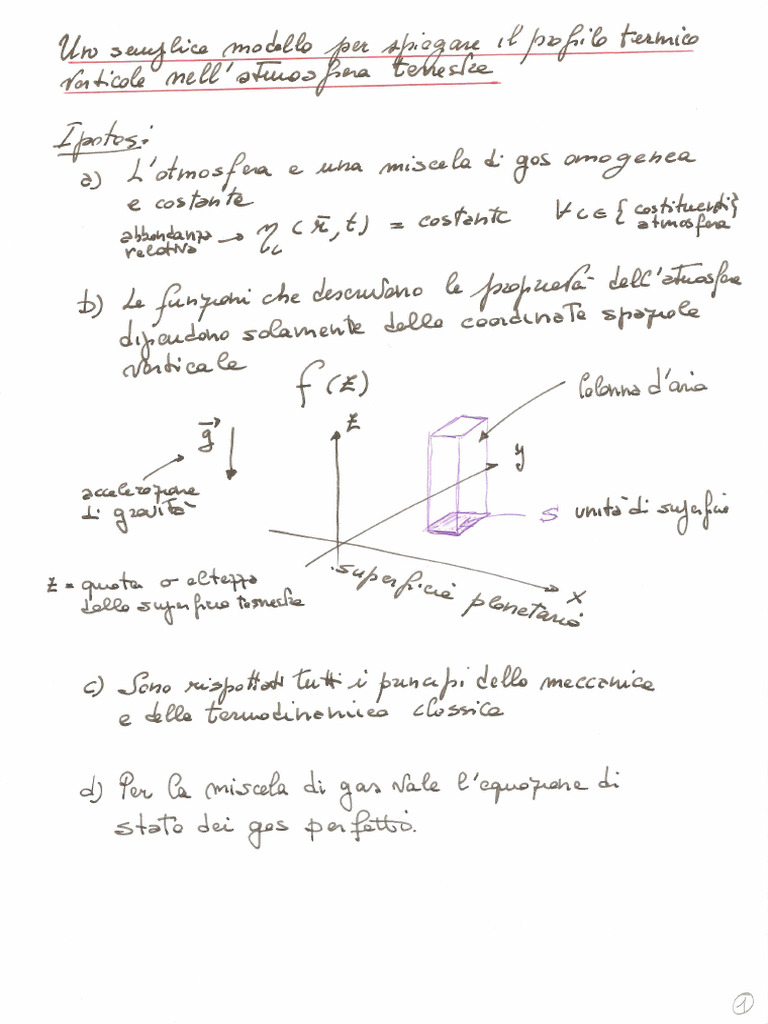 Uno semplice modello per spiegare il profilo termico
verticale nell'atmosfera terrestre
Ipotesi:
a) L'atmosfera e una miscela di gas omogenea
e costante
abbondanza
relativa → η_c (r̄, t) = costante ∀ c ∈ { costituenti
atmosfera }
b) Le funzioni che descrivono le proprietà dell'atmosfera
dipendono solamente dalla coordinata spaziale
verticale
f (z)
Colonna d'aria
z
g⃗
y
accelerazione
di gravità
S unità di superficie
z = quota o altezza
dalla superficie terrestre
superficie planetaria
x
c) Sono rispettati tutti i principi della meccanica
e della termodinamica classica
d) Per la miscela di gas vale l'equazione di
stato dei gas perfetti.
1